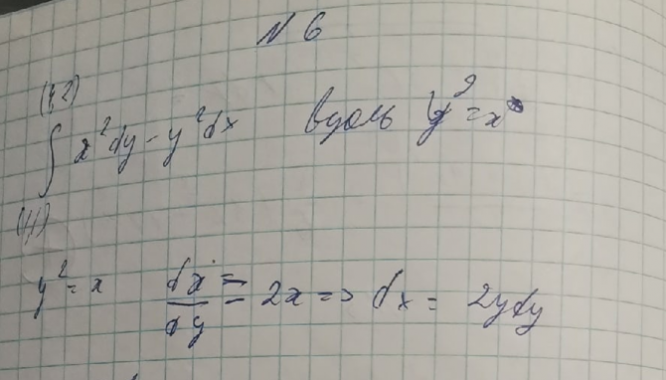 N 6
(4,2)
∫ x²dy - y²dx вдоль y² = x
(1,1)
y² = x dx/dy = 2x => dx = 2ydy